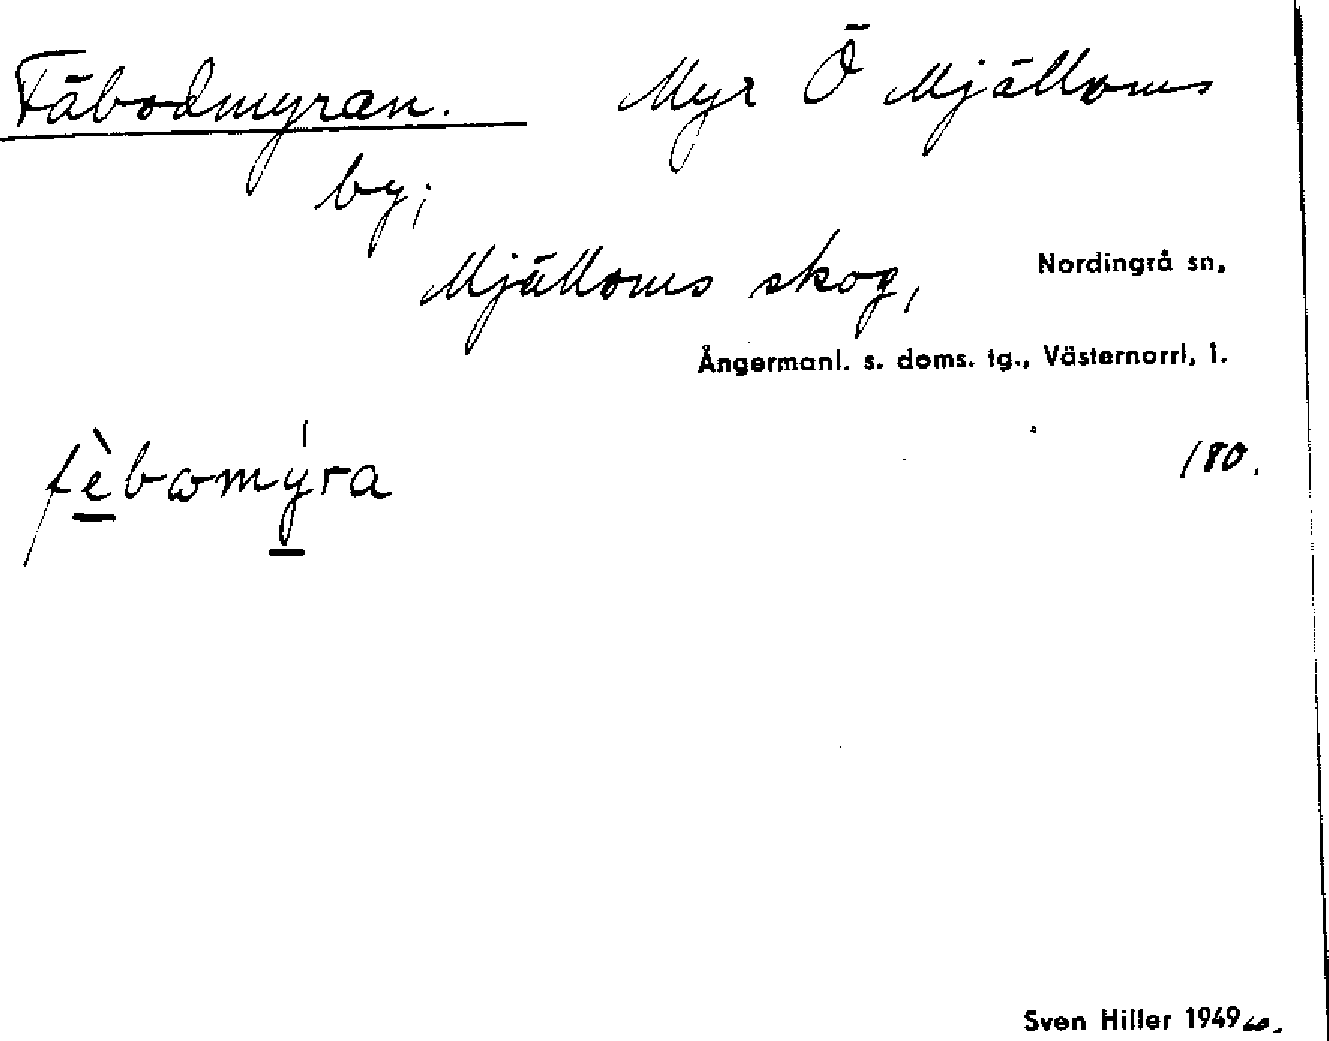 Fäbodmyran. Myr Ö Mjälloms
by;
Mjälloms skog, Nordingrå sn,
Ångermanl. s. doms. tg., Västernorrl, l.
180.
fὲbωmýra
Sven Hiller 1949